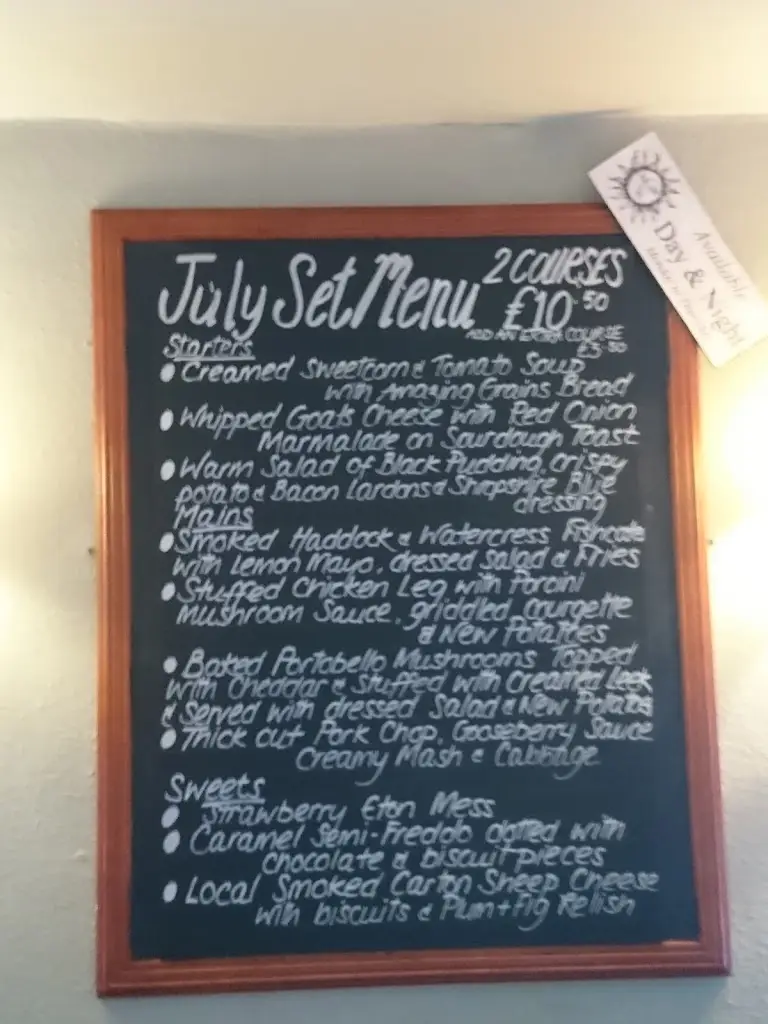 July Set Menu 2 COURSES
£10.50
ADD AN EXTRA COURSE
£3.50
Starters
• Creamed Sweetcorn & Tomato Soup
with Amazing Grains Bread
• Whipped Goats Cheese with Red Onion
Marmalade on Sourdough Toast
• Warm Salad of Black Pudding, crispy
potato & Bacon Lardons & Shropshire Blue
dressing
Mains
• Smoked Haddock & Watercress Fishcake
with Lemon Mayo, dressed salad & Fries
• Stuffed Chicken Leg with Porcini
Mushroom Sauce, griddled courgette
& New Potatoes
• Baked Portobello Mushrooms Topped
with Cheddar & Stuffed with creamed Leek
& Served with dressed Salad & New Potatoes
• Thick cut Pork Chop, Gooseberry Sauce
Creamy Mash & Cabbage
Sweets
• Strawberry Eton Mess
• Caramel Semi-Freddo dotted with
chocolate & biscuit pieces
• Local Smoked Carlton Sheep Cheese
with biscuits & Plum + Fig Relish
Available
Day & Night